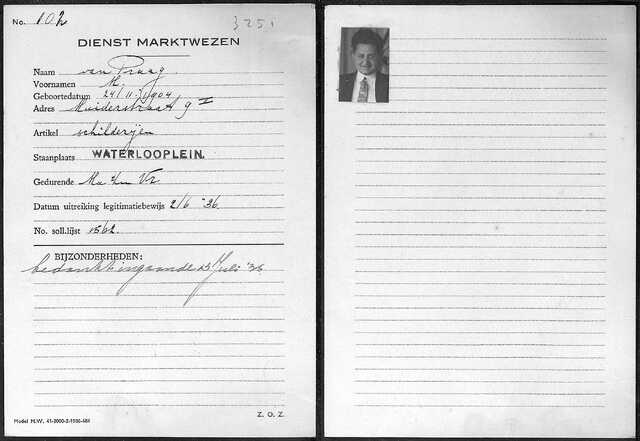 No. 102
3251
DIENST MARKTWEZEN
Naam van Praag
Voornamen M.
Geboortedatum 24/11 1904
Adres Muiderstraat 9 I
Artikel schilderijen
Staanplaats WATERLOOPLEIN.
Gedurende Ma t/m Vr.
Datum uitreiking legitimatiebewijs 2/6 '36
No. soll.lijst 1562
BIJZONDERHEDEN:
bedankt ingaande 13 Juli '36
Z. O. Z.
Model M.W. 41-2000-2-1936-484